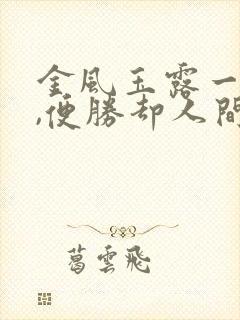 金風玉露一
,便勝却人間
葛雲飛